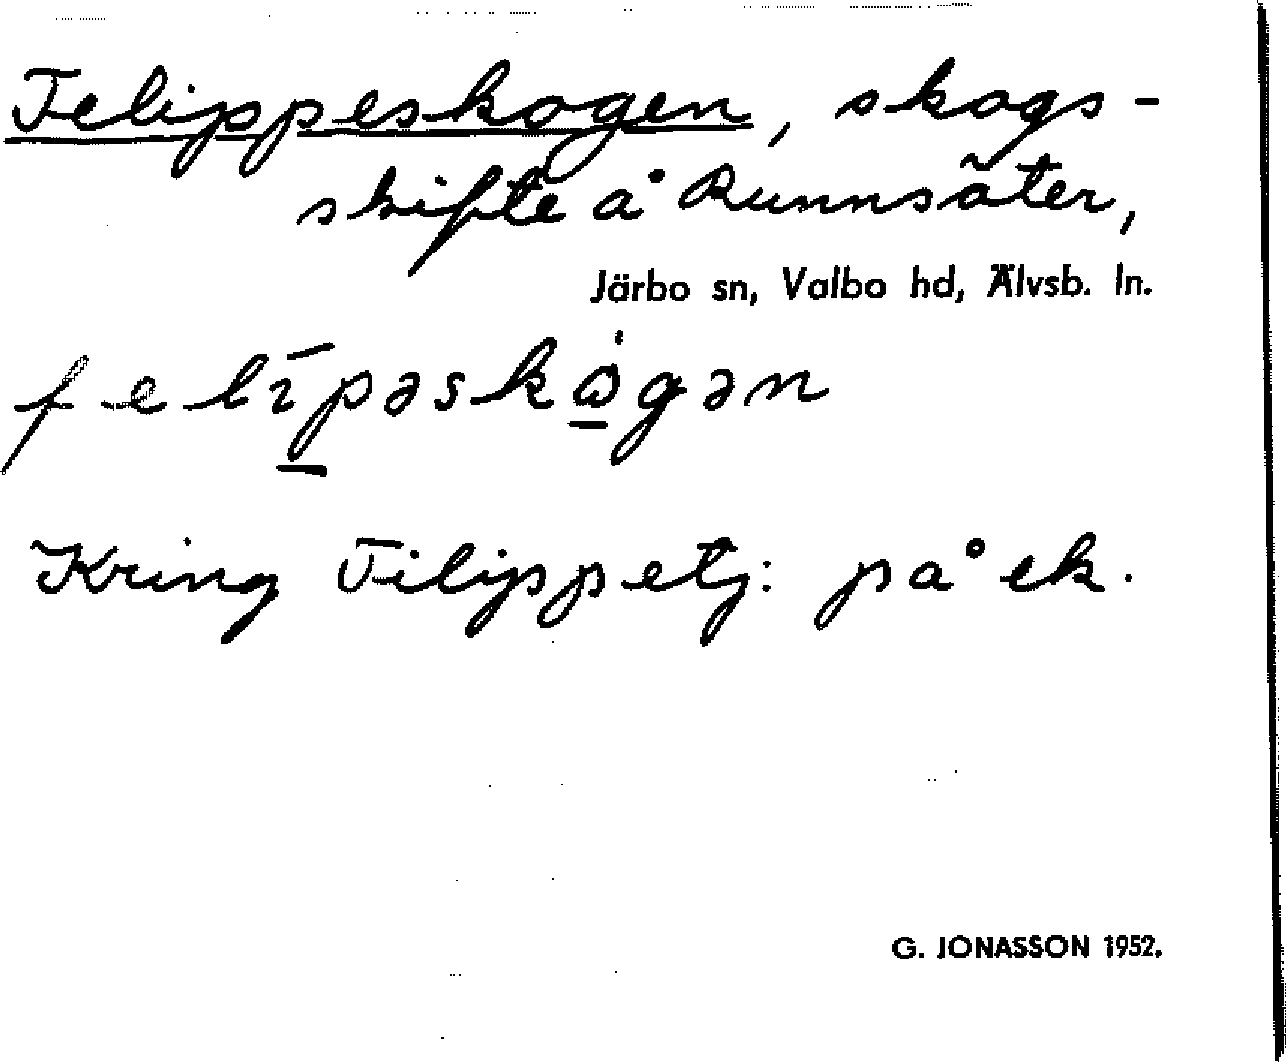 Felippeskogen, skogs-
skifte å Runnsäter,
Järbo sn, Valbo hd, Älvsb. ln.
felípəskògən
Kring Filippetj: på ek.
G. JONASSON 1952.